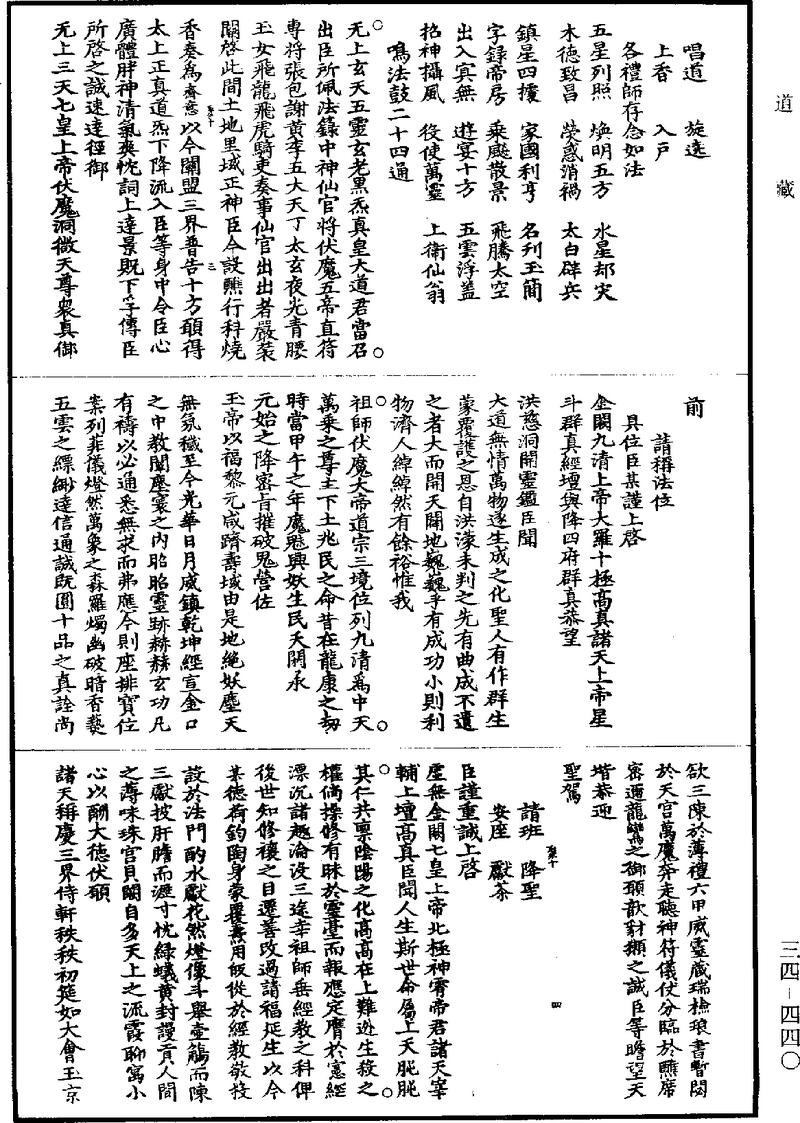 道藏
唱道　旋遶
上香　入戶
各禮師存念如法
五星列照　煥明五方　水星却灾
木德致昌　熒惑消禍　太白辟兵
鎮星四據　家國利亨　名刊玉簡
字錄帝房　乘飈散景　飛騰太空
出入冥無　遊宴十方　五雲浮蓋
招神攝風　役使萬靈　上衛仙翁
鳴法鼓二十四通
无上玄天五靈玄老黑炁真皇大道君當召
出臣所佩法籙中神仙官將伏魔五帝直符
專將張包謝黃李五大天丁太玄夜光青腰
玉女飛龍飛虎騎吏奏事仙官出出者嚴裝
關啓此間土地里域正神臣今設醮行科燒
香奏為齋意以今關盟三界普告十方願得
太上正真道炁下降流入臣等身中令臣心
廣體胖神清氣爽忱詞上達景貺下孚傳臣
所啓之誠速達徑御
无上三天七皇上帝伏魔洞微天尊衆真御
前
請稱法位
具位臣某謹上啓
金闕九清上帝大羅十極高真諸天上帝星
斗群真經壇與降四府群真恭望
洪慈洞開靈鑑臣聞
大道無情萬物遂生成之化聖人有作群生
蒙覆護之恩自洪濛未判之先有曲成不遺
之者大而開天闢地巍巍乎有成功小則利
物濟人綽綽然有餘裕惟我
祖師伏魔大帝道宗三境位列九清為中天
萬乘之尊主下土兆民之命昔在龍康之劫
時當甲午之年魔魅興妖生民夭閼承
元始之降密旨摧破鬼營佐
玉帝以福黎元咸躋壽域由是地絕妖塵天
無氛穢至今光華日月威鎮乾坤經宣金口
之中教闡塵寰之內昭昭靈跡赫赫玄功凡
有禱以必通悉無求而弗應今則座排寶位
案列菲儀燈然萬象之森羅燭幽破暗香藝
五雲之縹緲達信通誠既圓十品之真詮尚
欲三陳於薄禮六甲威靈藏瑞檢琅書暫閟
於天宮萬魔奔走聽神符儀仗分臨於醮席
密邇龍鸞之御願歆豺獺之誠臣等瞻望天
堦恭迎
聖駕
請班　降聖
安座　獻茶
臣謹重誠上啓
虛無金闕七皇上帝北極神霄帝君諸天宰
輔上壇高真臣聞人生斯世命屬上天肫肫
其仁共禀陰陽之化高高在上難逃生殺之
權倘操修有昧於靈臺而報應定膺於憲經
漂沉諸趣淪沒三途幸祖師垂經教之科俾
後世知修禳之目遷善改過請福延生以今
某德荷鈞陶身蒙覆燾用皈從於經教敬投
設於法門酌水獻花然燈像斗舉壺觴而陳
三獻披肝膽而瀝寸忱綠蟻黃封謾貢人間
之薄味珠宮貝闕自多天上之流霞聊寓小
心以酬大德伏願
諸天稱慶三界侍軒秩秩初筵如大會玉京
三四－四四〇